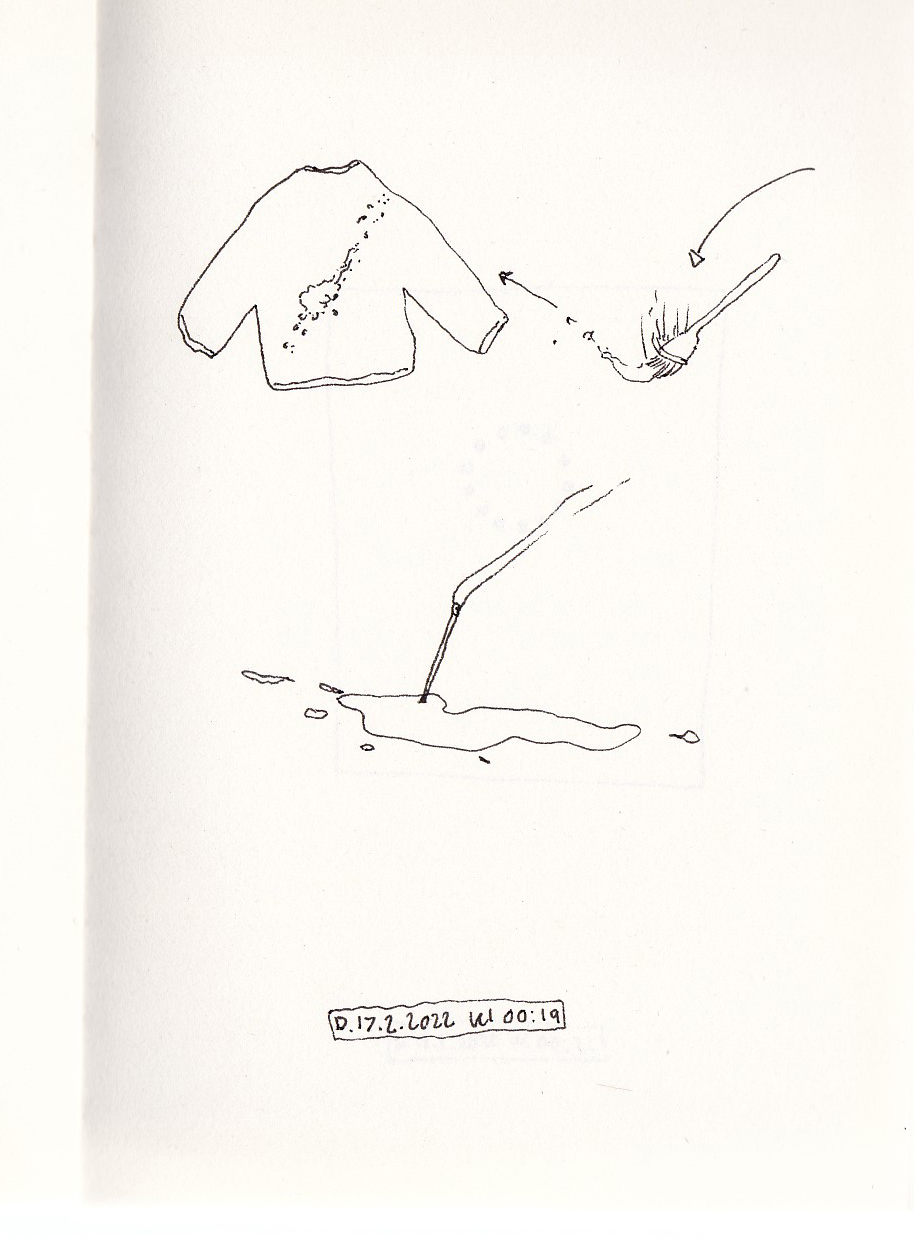 D.17.2.2022 kl 00:19